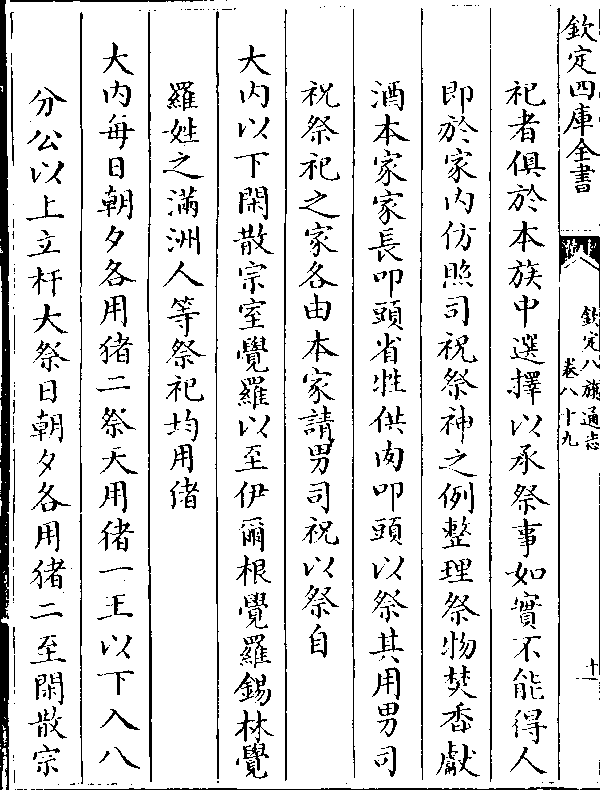 欽定四庫全書
欽定八旗通志
卷八十九
十一
祀者俱於本族中選擇以承祭事如實不能得人
即於家內仿照司祝祭神之例整理祭物焚香獻
酒本家家長叩頭省牲供肉叩頭以祭其用男司
祝祭祀之家各由本家請男司祝以祭自
大內以下閑散宗室覺羅以至伊爾根覺羅錫林覺
羅姓之滿洲人等祭祀均用猪
大內每日朝夕各用猪二祭天用猪一王以下入八
分公以上立杆大祭日朝夕各用猪二至閑散宗